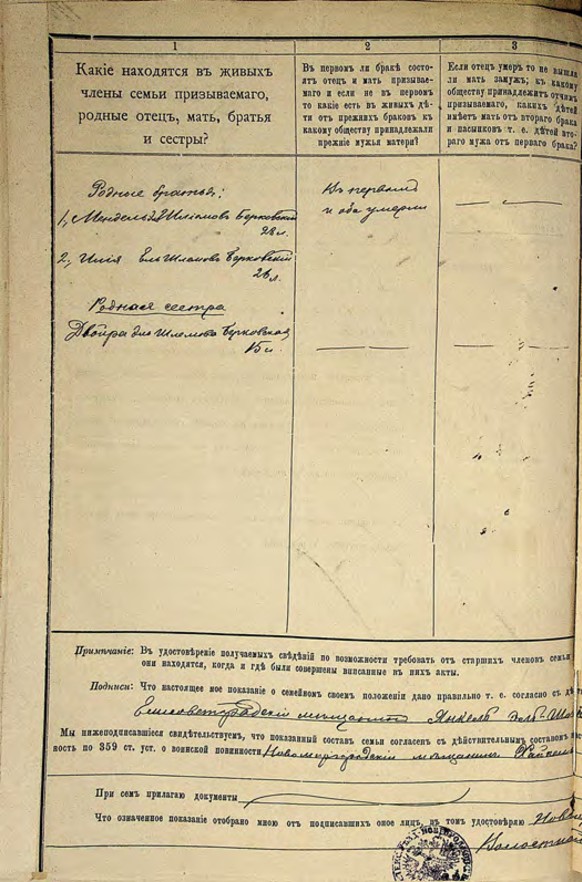 1
Какіе находятся въ живыхъ
члены семьи призываемаго,
родные отецъ, мать, братья
и сестры?
2
Въ первомъ ли бракѣ состо-
ятъ отецъ и мать призывае-
маго и если не въ первомъ
то какіе есть въ живыхъ дѣ-
ти отъ прежнихъ браковъ къ
какому обществу принадлежали
прежніе мужья матери?
3
Если отецъ умеръ то не вышла
ли мать замужъ; къ какому
обществу принадлежитъ отчимъ
призываемаго, какихъ дѣтей
имѣетъ мать отъ втораго брака
и пасынковъ т. е. дѣтей вто-
раго мужа отъ перваго брака?
Родные братья:
1, Мендель Берковскій
28 л.
2, Ель Шлемовъ Берковскій
26 л.
Родная сестра
Двойра Шлемова Берковская
15 л.
Въ первомъ
и оба умерли
Примѣчаніе: Въ удостовѣреніе получаемыхъ свѣдѣній по возможности требовать отъ старшихъ членовъ семьи
они находятся, когда и гдѣ были совершены вписанные въ нихъ акты.
Подписи: Что настоящее мое показаніе о семейномъ своемъ положеніи дано правильно т. е. согласно съ
Елисаветградскій мѣщанинъ Янкель
Мы нижеподписавшіеся свидѣтельствуемъ, что показанный составъ семьи согласенъ съ дѣйствительнымъ составомъ
ность по 359 ст. уст. о воинской повинности Новомиргородскій мѣщанинъ
При семъ прилагаю документы
Что означенное показаніе отобрано мною отъ подписавшихъ оное лицъ, въ томъ удостовѣряю